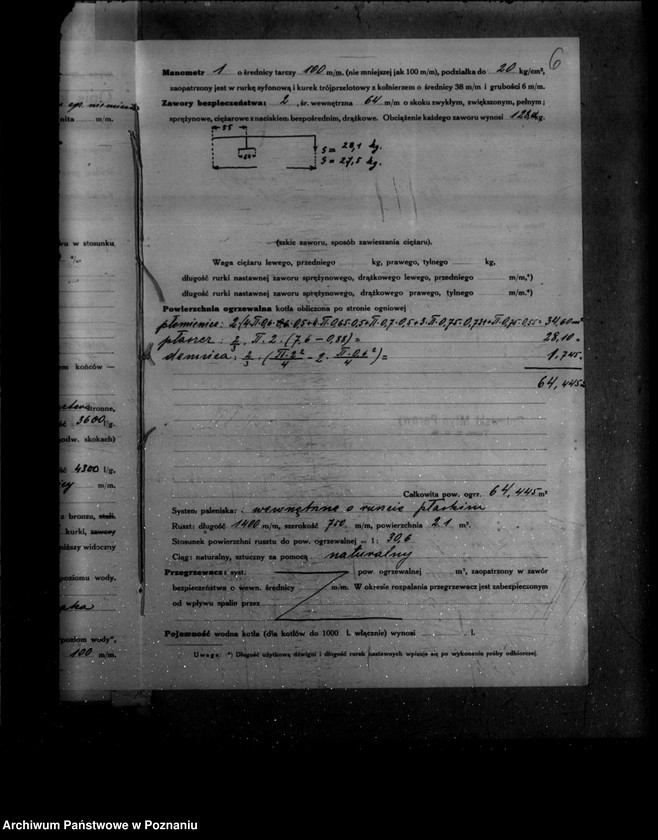 6
Manometr 1 o średnicy tarczy 100 m/m. (nie mniejszej jak 100 m/m), podziałka do 20 kg/cm²,
zaopatrzony jest w rurkę syfonową i kurek trójprzelotowy z kołnierzem o średnicy 38 m/m i grubości 6 m/m.
Zawory bezpieczeństwa: 2, śr. wewnętrzna 64 m/m o skoku zwykłym, zwiększonym, pełnym;
sprężynowe, ciężarowe z naciskiem bezpośrednim, drążkowe. Obciążenie każdego zaworu wynosi kg.
S = 28,1 kg.
S = 27,5 kg.
(szkic zaworu, sposób zawieszania ciężaru).
Waga ciężaru lewego, przedniego kg, prawego, tylnego kg,
długość rurki nastawnej zaworu sprężynowego, drążkowego lewego, przedniego m/m,*)
długość rurki nastawnej zaworu sprężynowego, drążkowego prawego, tylnego m/m.*)
Powierzchnia ogrzewalna kotła obliczona po stronie ogniowej
płomienice: 34,60 m²
płaszcz: 2/3 · π · 2 · (7,6 − 0,88) = 28,10 "
dennica: 2/3 · (π·2²/4 − 2 · π·0,6²/4) = 1,745 "
64,445
Całkowita pow. ogrz. 64,445 m²
System paleniska: wewnętrzne o ruszcie płaskim
Ruszt: długość 1400 m/m, szerokość 750 m/m, powierzchnia 2.1 m².
Stosunek powierzchni rusztu do pow. ogrzewalnej = 1: 30,6
Ciąg: naturalny, sztuczny za pomocą naturalny
Przegrzewacz: syst. pow. ogrzewalnej m², zaopatrzony w zawór
bezpieczeństwa o wewn. średnicy m/m. W okresie rozpalania przegrzewacz jest zabezpieczonym
od wpływu spalin przez
Pojemność wodna kotła (dla kotłów do 1000 l. włącznie) wynosi l.
Uwaga: *) Długość użytkową dźwigni i długość rurek nastawnych wpisuje się po wykonaniu próby odbiorczej.
m/m.
w stosunku
%
em końców —
stronne,
3600 l/g.
odw. skokach)
4300 l/g,
m/m.
z bronzu, stali.
kurki, zawory
niższy widoczny
poziomu wody.
„poziom wody",
100 m/m.
Archiwum Państwowe w Poznaniu